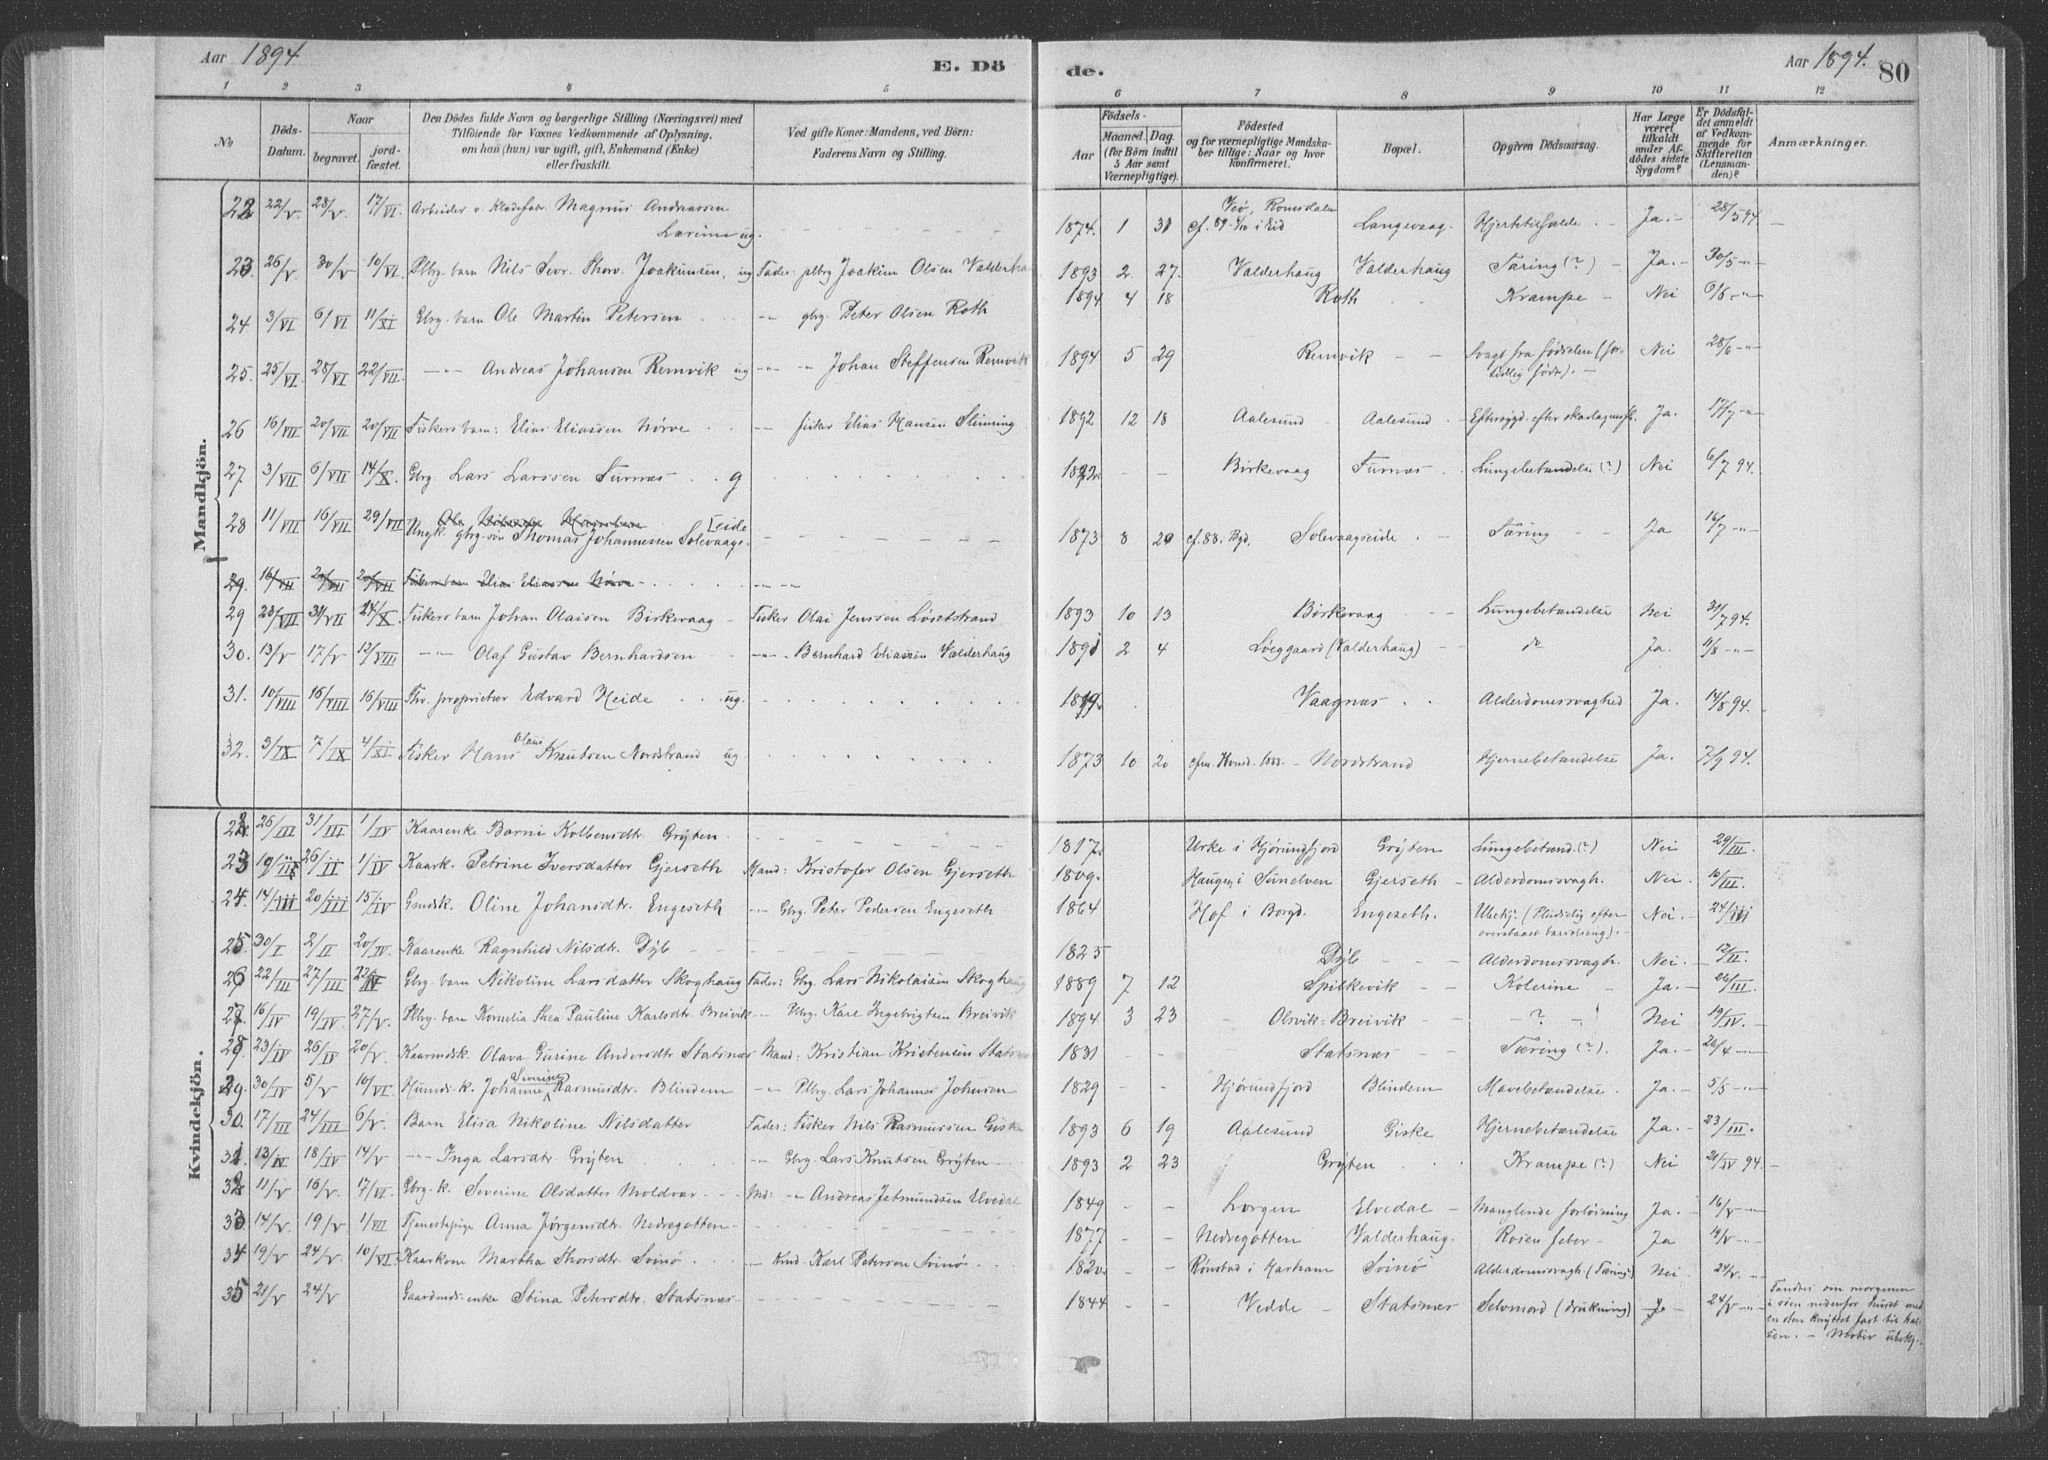 Aar 1894. E. Dö
1 2 3 4 5
No Döds-Datum. Naar begravet. jordfæstet. Den Dödes fulde Navn og borgerlige Stilling (Næringsvei) med Tilföiende for Voxnes Vedkommende af Oplysning, om han (hun) var ugift, gift, Enkemand (Enke) eller fraskilt. Ved gifte Koner: Mandens, ved Börn: Faderens Navn og Stilling.
Mandkjön.
22 22/V 28/V 17/VI Arbeider v. Klædefabr. Magnus Andreassen
Larsine ug.
23. 26/V 30/V 10/VI Plbrg. barn Nils Sevr. Thorv. Joakimsen, ug Fader: plbrg Joakim Olsen Valderha
24 3/VI 6/VI 11/XI Gbrg. barn Ole Martin Petersen -"- gbrg. Peter Olsen Roth
25. 25/VI 28/VI 22/VII -"- Andreas Johansen Remvik ug -"- " Johan Steffensen Remvik
26 16/VII 20/VII 20/VII Fiskers barn: Elias Eliassen Nörve -"- fisker Elias Hansen Slinning
27 3/VII 6/VII 14/X Gbrg. Lars Larssen Furnæs g
28 11/VII 16/VII 29/VII Ungk. gbrg. sön Thomas Johannessen Solevaags- [eide
29. 16/VII 20/VII 20/VII Fiskers barn Elias Eliassen Nörve -"-
29 28/VII 31/VII 24/X Fiskers barn Johan Olaisen Birkevaag Fisker Olai Jenssen Løsetstrand
30. 13/V 17/V 12/VIII -"- Olaf Gustav Bernhardsen -"- Bernhard Eliassen Valderhaug
31. 10/VIII 16/VIII 16/VIII Fhv. proprietær Edvard Heide ug.
32. 3/IX 7/IX 4/XI Fisker Hans Olaus Knutsen Nordstrand ug
Kvindekjön.
22 26/III 31/III 1/IV Kaarenke Barni Kolbensdtr. Gryten.
23 19/II 26/II 1/IV Kaark. Petrine Iversdatter Gjerseth Mand: Kristofer Olsen Gjerseth
24 14/III 20/III 15/IV Gmdsk. Oline Johansdtr. Engeseth -"- Gbrg. Peter Pedersen Engeseth
25 30/I 2/II 20/IV Kaarenke Ragnhild Nilsdtr. Dyb
26 22/III 27/III 22/IV Gbrg. barn Nikoline Larsdatter Skoghaug Fader: Gbrg Lars Nikolaisen Skoghaug
27 16/IV 19/IV 27/V Plbrg. barn Kornelia Thea Pauline Karlsdtr. Breivik -"- Plbrg. Karl Ingebrigtsen Breivik
28 23/IV 26/IV 20/V Kaarmdsk. Olava Gurine Andersdtr Statsnæs Mand: Kristian Kristensen Statsnæs
29. 30/IV 5/V 10/VI Husmds. k. Johanne Severine Rasmusdtr. Blindem -"- Plbrg. Lars Johannes Johnsen
30. 17/III 24/III 6/V Barn Elisa Nikoline Nilsdatter Fader: Fisker Nils Rasmussen Giske
31 13/IV 18/IV 14/V -"- Inga Larsdtr. Gryten -"- Gbrg. Lars Knutsen Gryten
32 11/V 16/V 17/VI Gbrg. k. Severine Olsdatter Moldvær Md: -"- Andreas Jetmundsen Elvedal
33 14/V 19/V 1/VII Tjenestepige Anna Jørgensdtr. Nedregotten
34 19/V 24/V 10/VI Kaarkone Martha Thorsdtr. Svinö -"- Kmd. Karl Petersen Svinö
35 21/V 24/V Gaardmds. enke Stina Petersdtr. Statsnæs
de. Aar 1894. 80
6 7 8 9 10 11 12
Födsels- Aar Maaned. Dag. (for Börn indtil 5 Aar samt Værnepligtige). Födested og for værnepligtige Mandskaber tillige: Naar og hvor konfirmeret. Bopæl. Opgiven Dödsaarsag. Har Læge været tilkaldt under Afdödes sidste Sygdom? Er Dödsfaldet anmeldt af Vedkommende for Skifteretten (Lensmanden)? Anmærkninger.
1874. 1 31 Veö, Romsdalen cf. 89 4/10 i Eid Langevaag. Hjertetilfælde. Ja. 28/5 94.
1893 2 27. Valderhaug Valderhaug Tæring (?) Ja. 30/5 -"-
1894 4 18 Roth Krampe Nei 6/6 -"-
1894 5 29 Remvik Svagt fra födselen (for- Nei 28/6 -"-
tidlig födt).
1892 12 18 Aalesund Aalesund Eftersygd. efter skarlagensfb. Ja. 17/7 -"-
1822 - - Birkevaag Furnæs Lungebetændelse (?) Nei 6/7 94.
1873 8 20 cf. 88. Bgd. Solevaagseide Tæring Ja 16/7 -"-
1893 10 13 Birkevaag Lungebetændelse Nei 31/7 94.
1891 2 4 Løeggaard (Valderhaug) do Ja. 11/8 -"-
1819. Vaagnæs Alderdomssvaghed Ja. 14/8 94.
1873 10 20 cfm. Hovd. 1888. Nordstrand Hjernebetændelse Ja. 7/9 94.
1817. Urke i Hjørundfjord Gryten Lungebetænd. (?) Nei 29/III.
1809. Haugen i Sunelven Gjerseth Alderdomssvagh. Nei 10/III.
1864 Hof i Borgd. Engeseth. Ubekj. (Pludselig efter Nei 24/III
overstaaet barselseng).
1825 Dyb Alderdomssvagh. Nei 12/II.
1889 7 12 Spilkevik Kolerine Ja. 26/III.
1894 3 23 Olsvik-Breivik ? Nei 19/IV.
1831 - - Statsnæs Tæring (?). Ja. 26/4 -"-
1829 - - Hjørundfjord Blindem Mavebetændelse. Ja. 5/5 -"-
1893 6 19 Aalesund Giske Hjernebetændelse Ja. 23/III.
1893 2 23 Gryten Krampe (?) Nei 21/IV 94.
1849 - - Lorgen Elvedal Manglende forløsning Ja. 16/V -"-
1877 - - Nedregotten Valderhaug. Rosen feber Ja 19/V -"-
1820. - - Rönstad i Harham Svinö Alderdomssvagh. (Tæring) Nei 24/V -"-
1844 - - Vedde Statsnæs Selvmord (drukning) Ja 24/V -"- Fandtes om morgenen
i søen nedenfor huset med
en sten knyttet fast til hal-
sen. - Motiv ubekj.